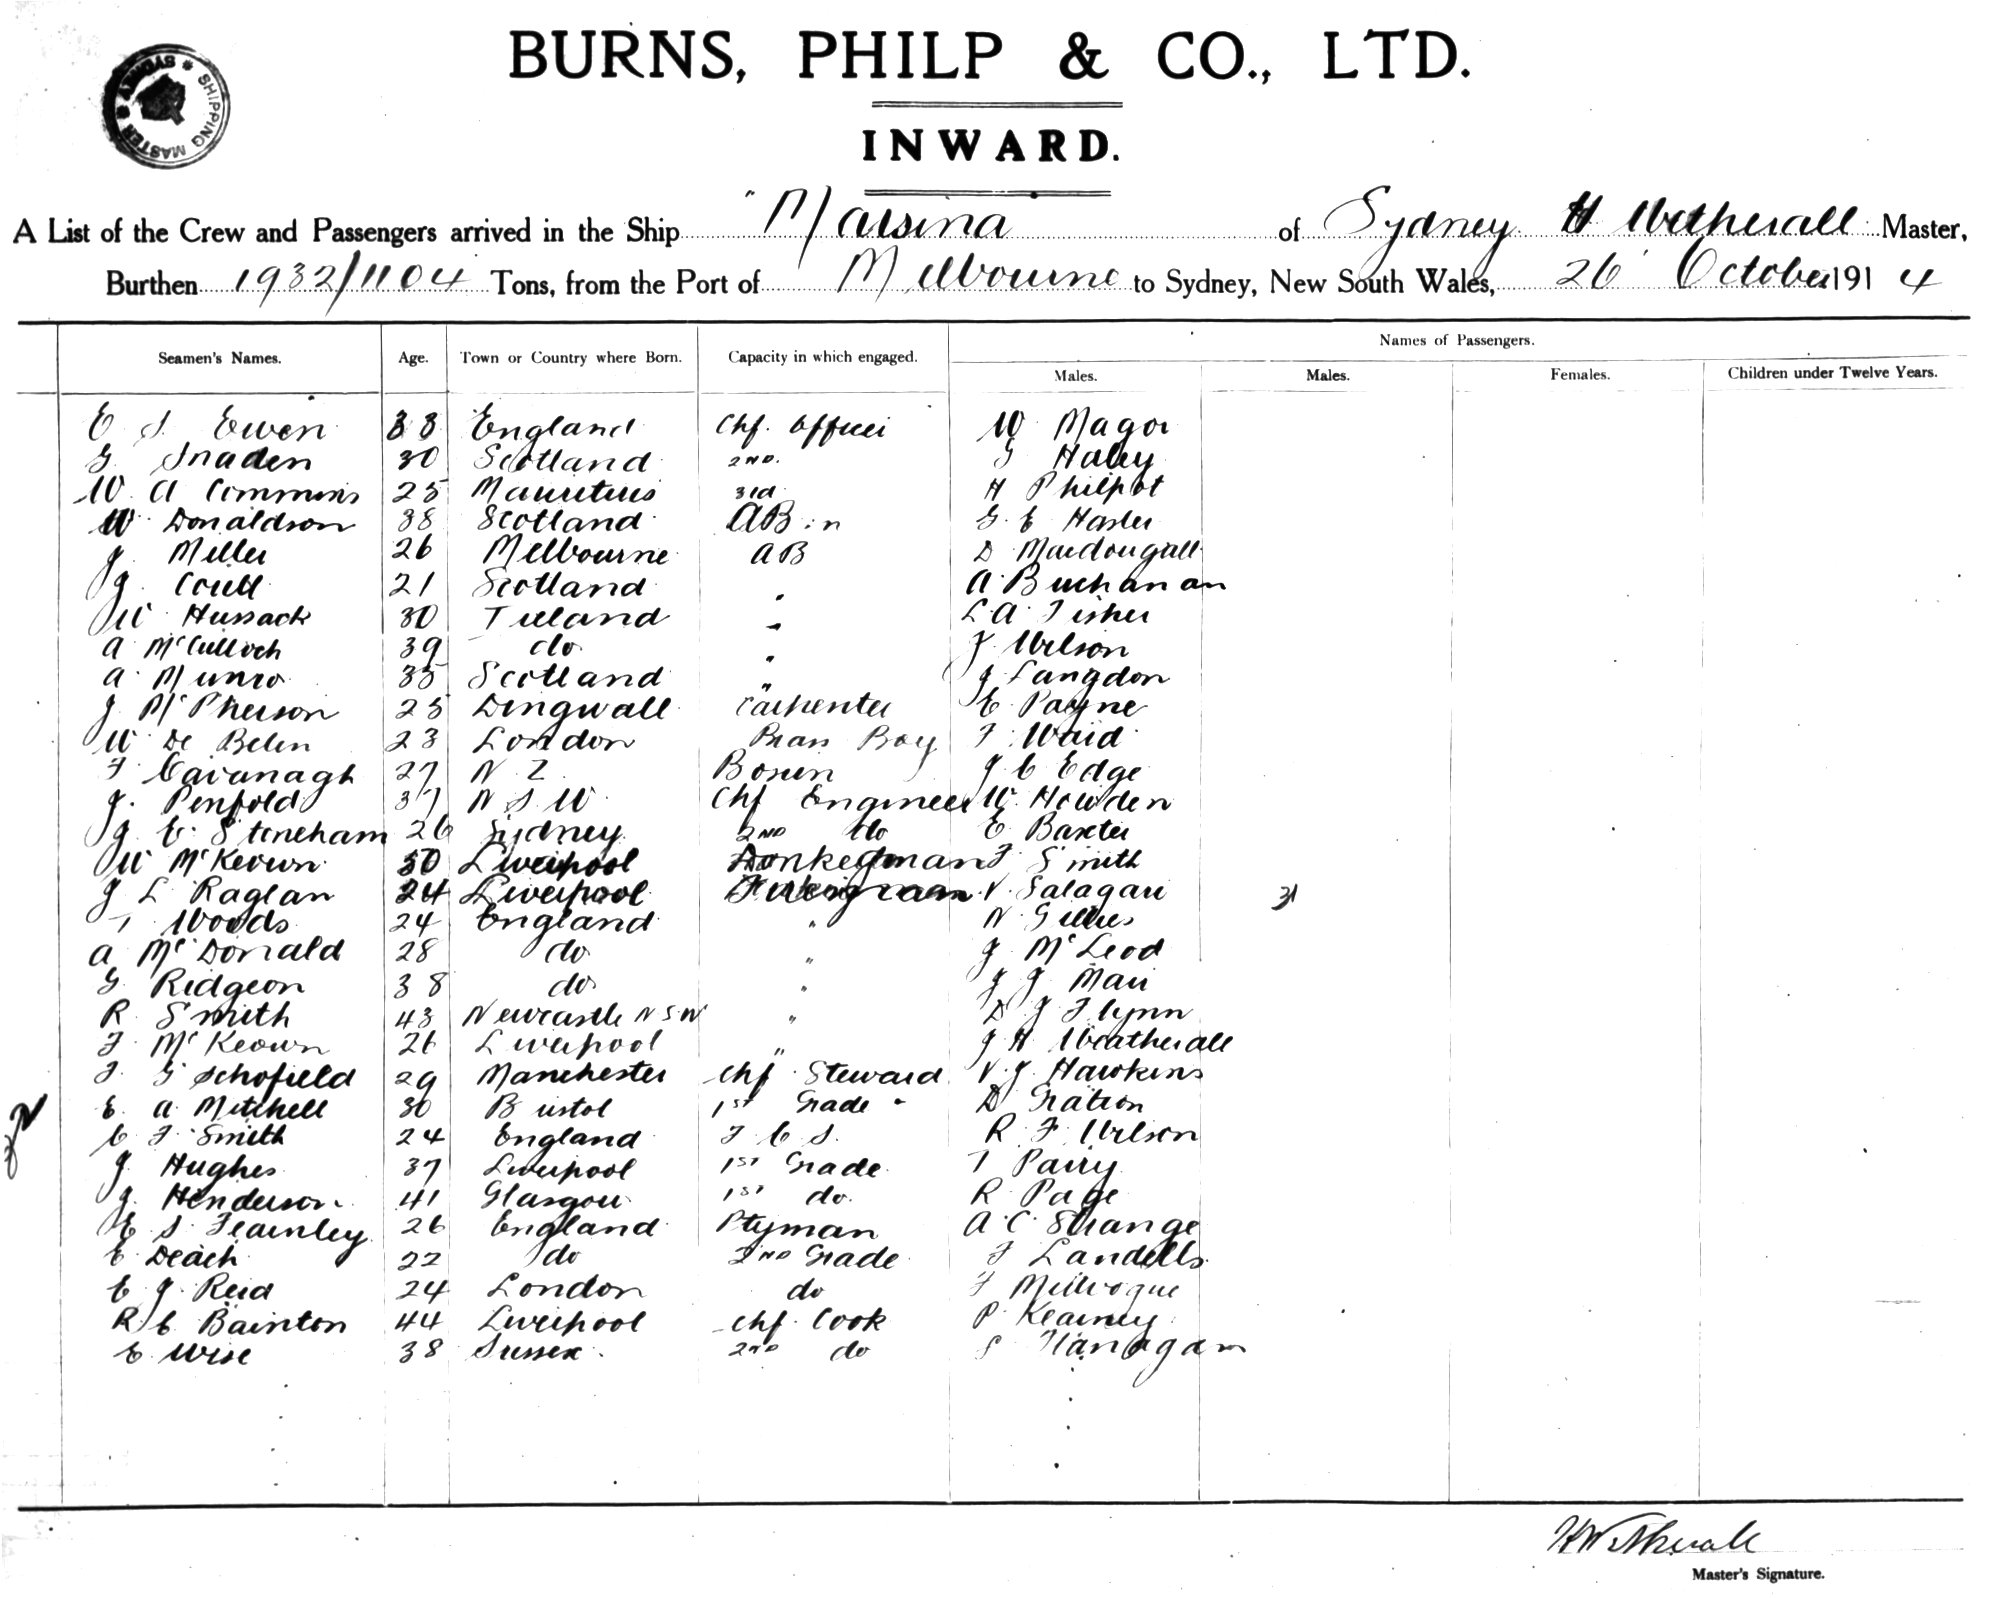 BURNS, PHILP & CO., LTD.
INWARD.
SYDNEY * SHIPPING MASTER
A List of the Crew and Passengers arrived in the Ship "Marsina of Sydney H Wetherall Master,
Burthen 1932/1104 Tons, from the Port of Melbourne to Sydney, New South Wales, 26 October 1914
Names of Passengers.
Seamen's Names. Age. Town or Country where Born. Capacity in which engaged. Males. Males. Females. Children under Twelve Years.
E S Ewen 33 England Chf. Officer W Magor
G Snaden 30 Scotland 2ND. G Haley
W A Commins 25 Mauritius 3rd H Philpot
W Donaldson 38 Scotland AB G E Hasler
J Miller 26 Melbourne AB D Macdougall
J Coull 21 Scotland " A Buchanan
W Hussack 30 Ireland " L A Fisher
A McCulloch 39 do " J Wilson
A Munro 35 Scotland " J Langdon
J McPherson 25 Dingwall Carpenter E Payne
W De Belin 23 London Brass Boy F Ward
F Cavanagh 27 N Z Bosun J C Edge
J. Penfold 37 N S W Chf Engineer W. Howden
J E Stoneham 26 Sydney 2ND do E Baxter
W McKeown 30 Liverpool Donkeyman F Smith
J L Raglan 24 Liverpool V Salagari 31
T Woods 24 England " N Gillies
A McDonald 28 do " J McLeod
G Ridgeon 38 do " J J Mair
R Smith 43 Newcastle NSW " D J Flynn
F McKeown 26 Liverpool " J H Weatherall
F G Schofield 29 Manchester Chf Steward V J Hawkins
E A Mitchell 30 Bristol 1ST Grade " D Gration
C F Smith 24 England F C S. R F Wilson
J Hughes 37 Liverpool 1ST Grade T Parry
J. Henderson 41 Glasgow 1ST do. R Page
E S Fearnley 26 England Ptyman A C Strange
E Deach 22 do 2ND Grade F Landells
E J Reid 24 London do F
R C Bainton 44 Liverpool Chf Cook P Kearney
E Wise 38 Sussex 2ND do S Flanagan
32
H Wetherall
Master's Signature.